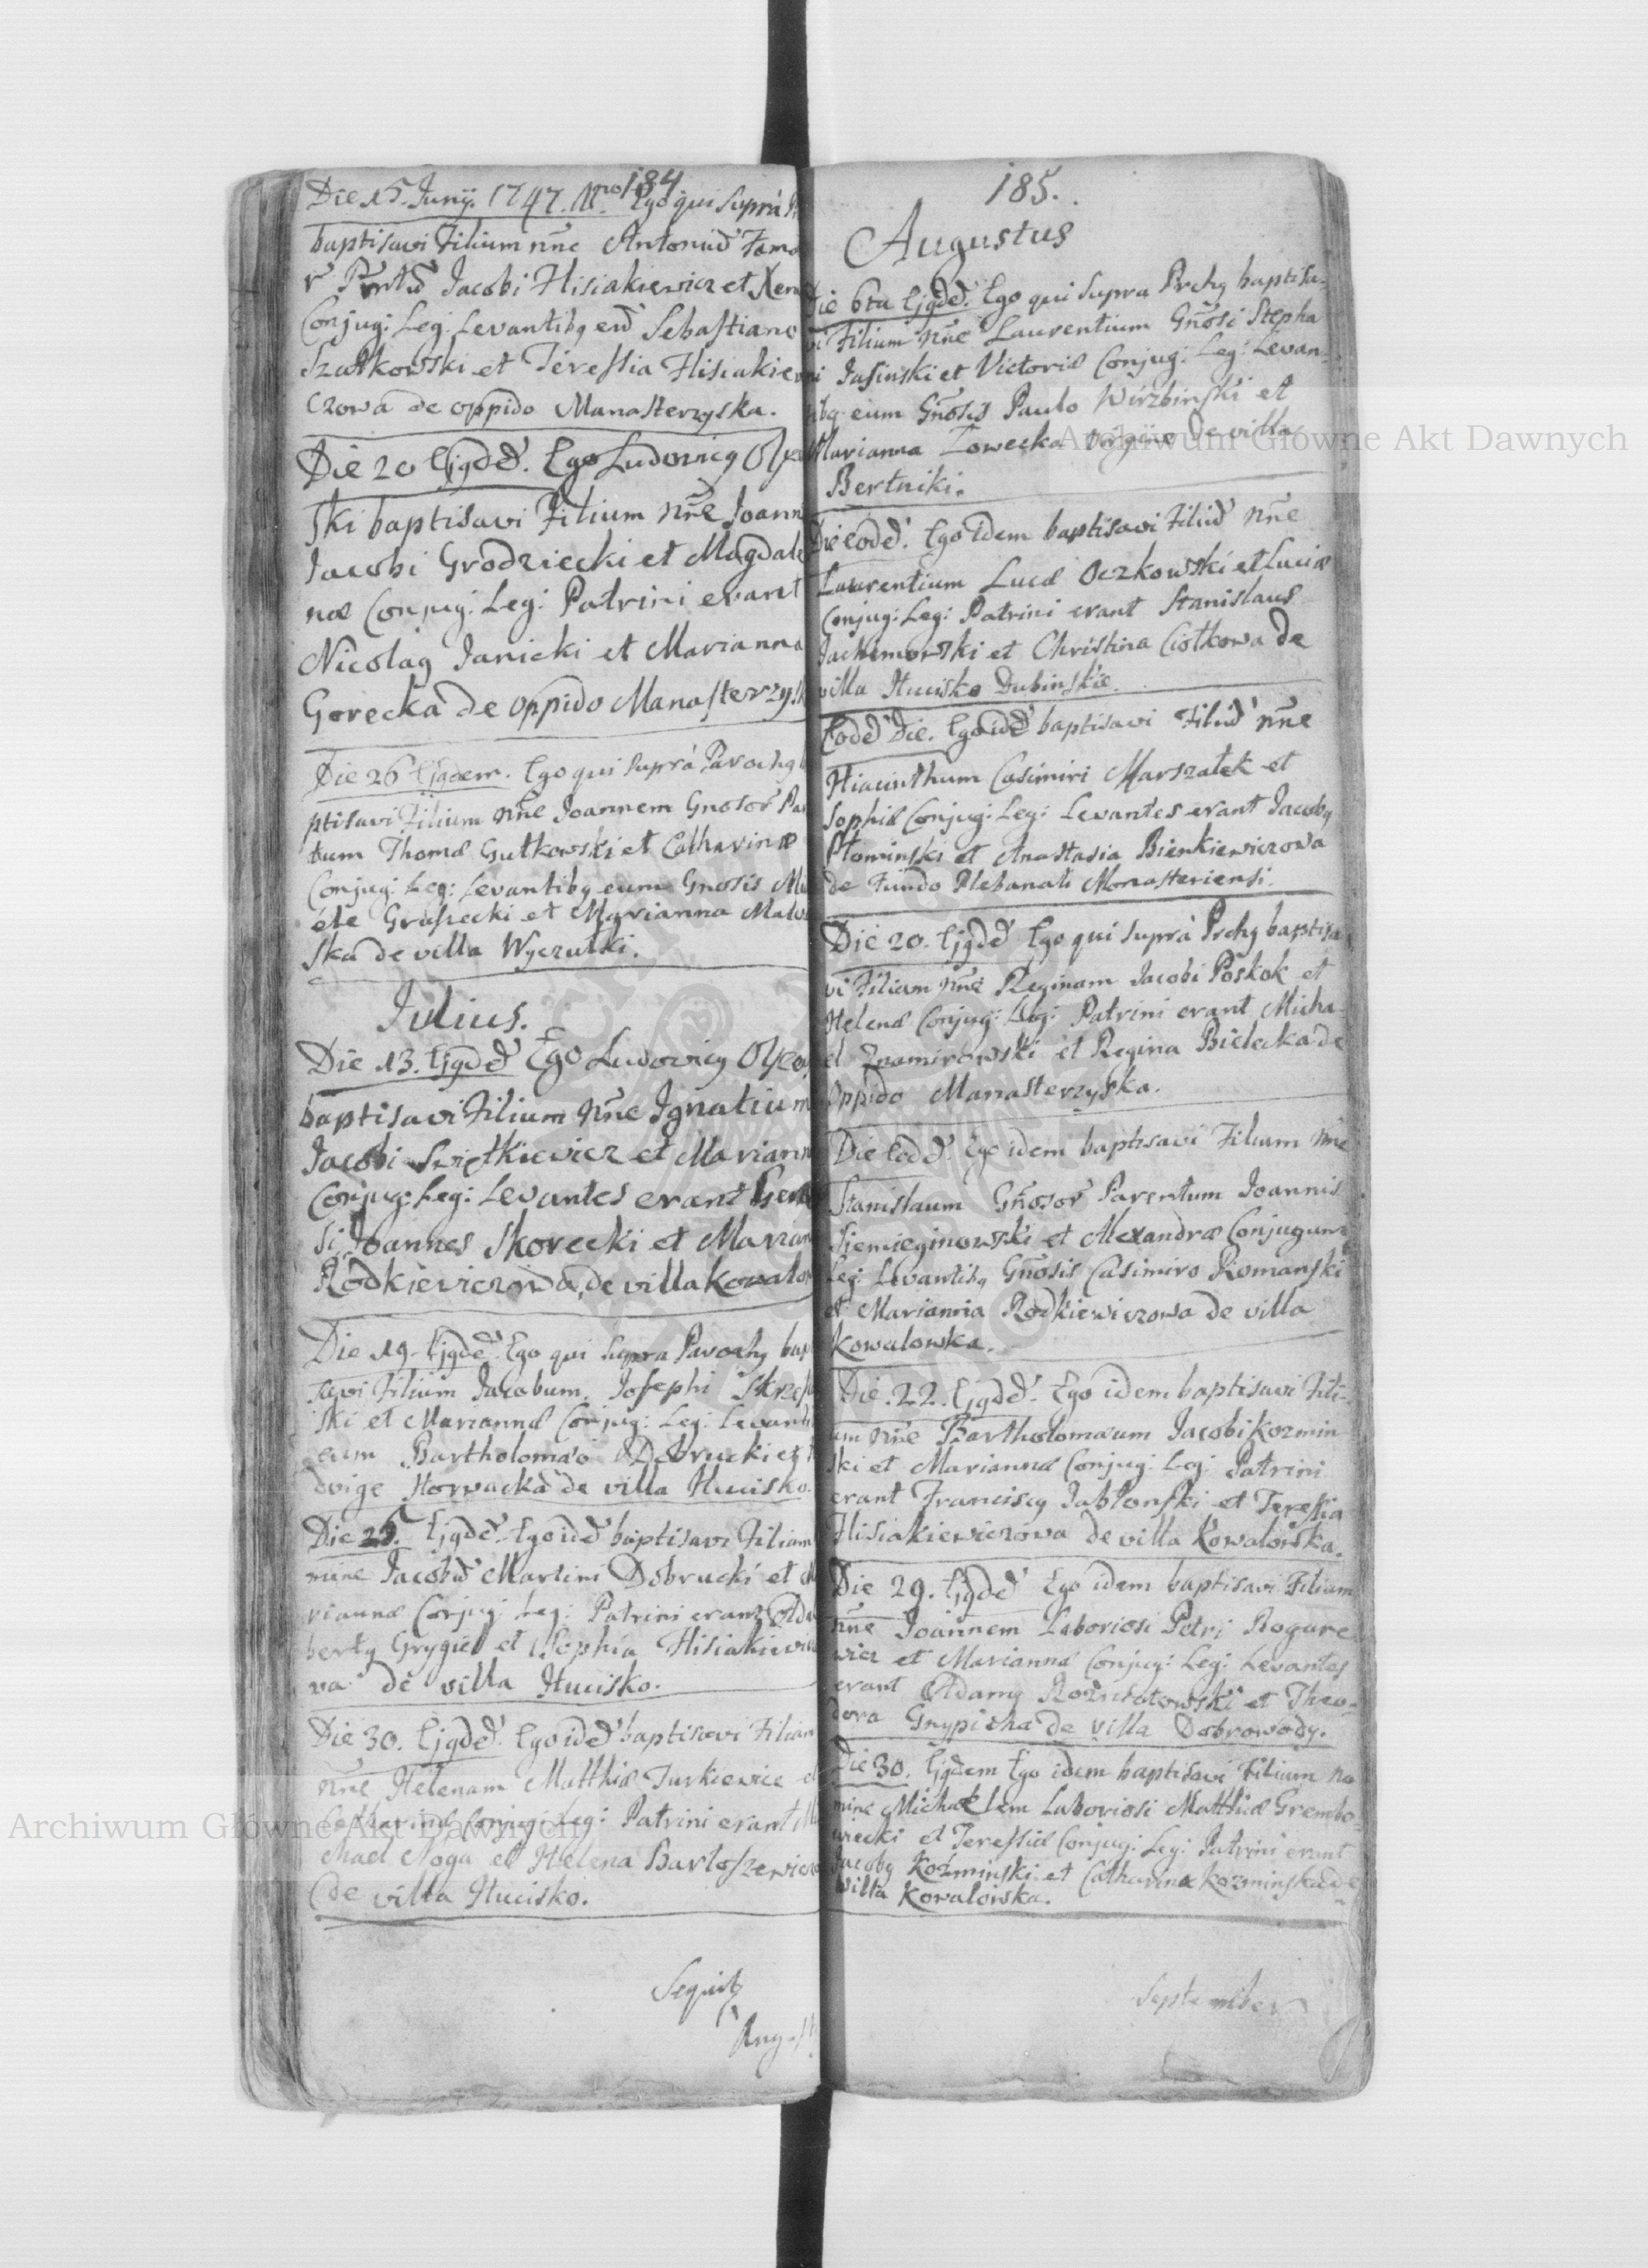 184
Die 15. Junÿ. 1747. Ao. Ego qui supra
baptisavi Filium nñe Antoniũ
Jacobi Hisiakiewicz et
Conjug: Leg: Levantibq eũ Sebastiano
Szatkowski et Teressia Hisiakie
czowa de oppido Manasterzyska.
Die 20 Ejqdẽ. Ego Ludovicq
ski baptisavi Filium nñe Joann
Jacobi Grodziecki et Magdale
næ Conjug: Leg: Patrini erant
Nicolaq Janicki et Marianna
Gorecka de oppido Manasterzys
Die 26 Ejqdem. Ego qui supra Parochq
ptisavi Filium nñe Joannem Gnosor̃ Pa
tum Thomæ Gutkowski et Catharinæ
Conjug: Leg: Levantibq eum Gnosis
ele et Marianna
ska de villa Wyczułki.
Julius.
Die 13. Ejqdẽ Ego Ludovicq
baptisavi Filium nñe Ignatium
Jacobi Swiętkiewicz et Mariann
Conjug: Leg: Levantes erant Gene
si Joannes Skorecki et Marian
Rodkiewiczowa, de villa Kowalow
Die 19. Ejqdẽ. Ego qui supra Parochq bap
savi Filium Jacobum, Josephi
ski et Mariannæ Conjug: Leg: Levanti
eum Bartholomæo Dobrucki et
dvige Horwacka de villa Hucisko.
Die 25. Ejqdẽ. Ego idẽ baptisavi Filium
mine Jacobũ Martini Dobrucki et
riannæ Conjug: Leg: Patrini erant Ada
bertq Grygiel et Sophia Hisiakiewi
va de villa Hucisko.
Die 30. Ejqdẽ. Ego idẽ baptisavi Filiam
nñe Helenam Matthiæ Turkiewicz et
Conjug: Leg: Patrini erant
chael Noga et Helena Bartoszewicz
de villa Hucisko.
Sequit
Aug
185.
Augustus
Die 6ta Ejqdẽ. Ego qui supra Prchq baptisa
vi Filium nñe Laurentium Gñosi Stepha
ni Jasinski et Victoriæ Conjug: Leg: Levan
tibq eum Gñosis Paulo Wirzbinski et
Marianna Łowecka virgine de villa
Bertniki.
Die eodẽ. Ego idem baptisavi Filiũ nñe
Laurentium Lucæ Oczkowski et Luciæ
Conjug: Leg: Patrini erant Stanislaus
Jachimowski et Christina Ciołkowa de
villa Hucisko Dubinskie.
Eodẽ Die. Ego idẽ baptisavi Filiũ nñe
Hiacinthum Casimiri Marszałek et
Sophiæ Conjug: Leg: Levantes erant Jacobq
Płominski et Anastasia Bienkiewiczowa
de Fundo Plebanali Monasteriensi.
Die 20. Ejqdẽ Ego qui supra Prchq baptisa
vi Filiam nñe Reginam Jacobi Poskok et
Helenæ Conjug: Leg: Patrini erant Micha
el Znamirowski et Regina Bielecka de
oppido Manasterzyska.
Die Eodẽ. Ego idem baptisavi Filium nñe
Stanislaum Gñosor̃ Parentum Joannis
Siemieginowski et Alexandræ Conjugum
Leg: Levantibq Gñosis Casimiro Romanski
et Marianna Rodkiewiczowa de villa
Kowalowka.
Die. 22. Ejqdẽ. Ego idem baptisavi Fili-
um nñe Bartholomæum Jacobi Kozmin
ski et Mariannæ Conjug: Leg: Patrini
erant Franciscq Jabłonski et Teressia
Hisiakiewiczowa de villa Kowalowka.
Die 29. Ejqdẽ Ego idem baptisavi Filium
nñe Joannem Laboriosi Petri Rogure
wicz et Mariannæ Conjug: Leg: Levantes
erant Adamq et Theo-
dora Gnypicha de villa Dobrowody.
Die 30. Ejqdem Ego idem baptisavi Filium no
mine Michaelem Laboriosi Matthiæ Grembo
wiecki et Teressiæ Conjug: Leg: Patrini erant
Jacobq Koźminski et Catharina Kozminska de
villa Kowalowka.
September
Archiwum Główne Akt Dawnych
Archiwum Główne Akt Dawnych